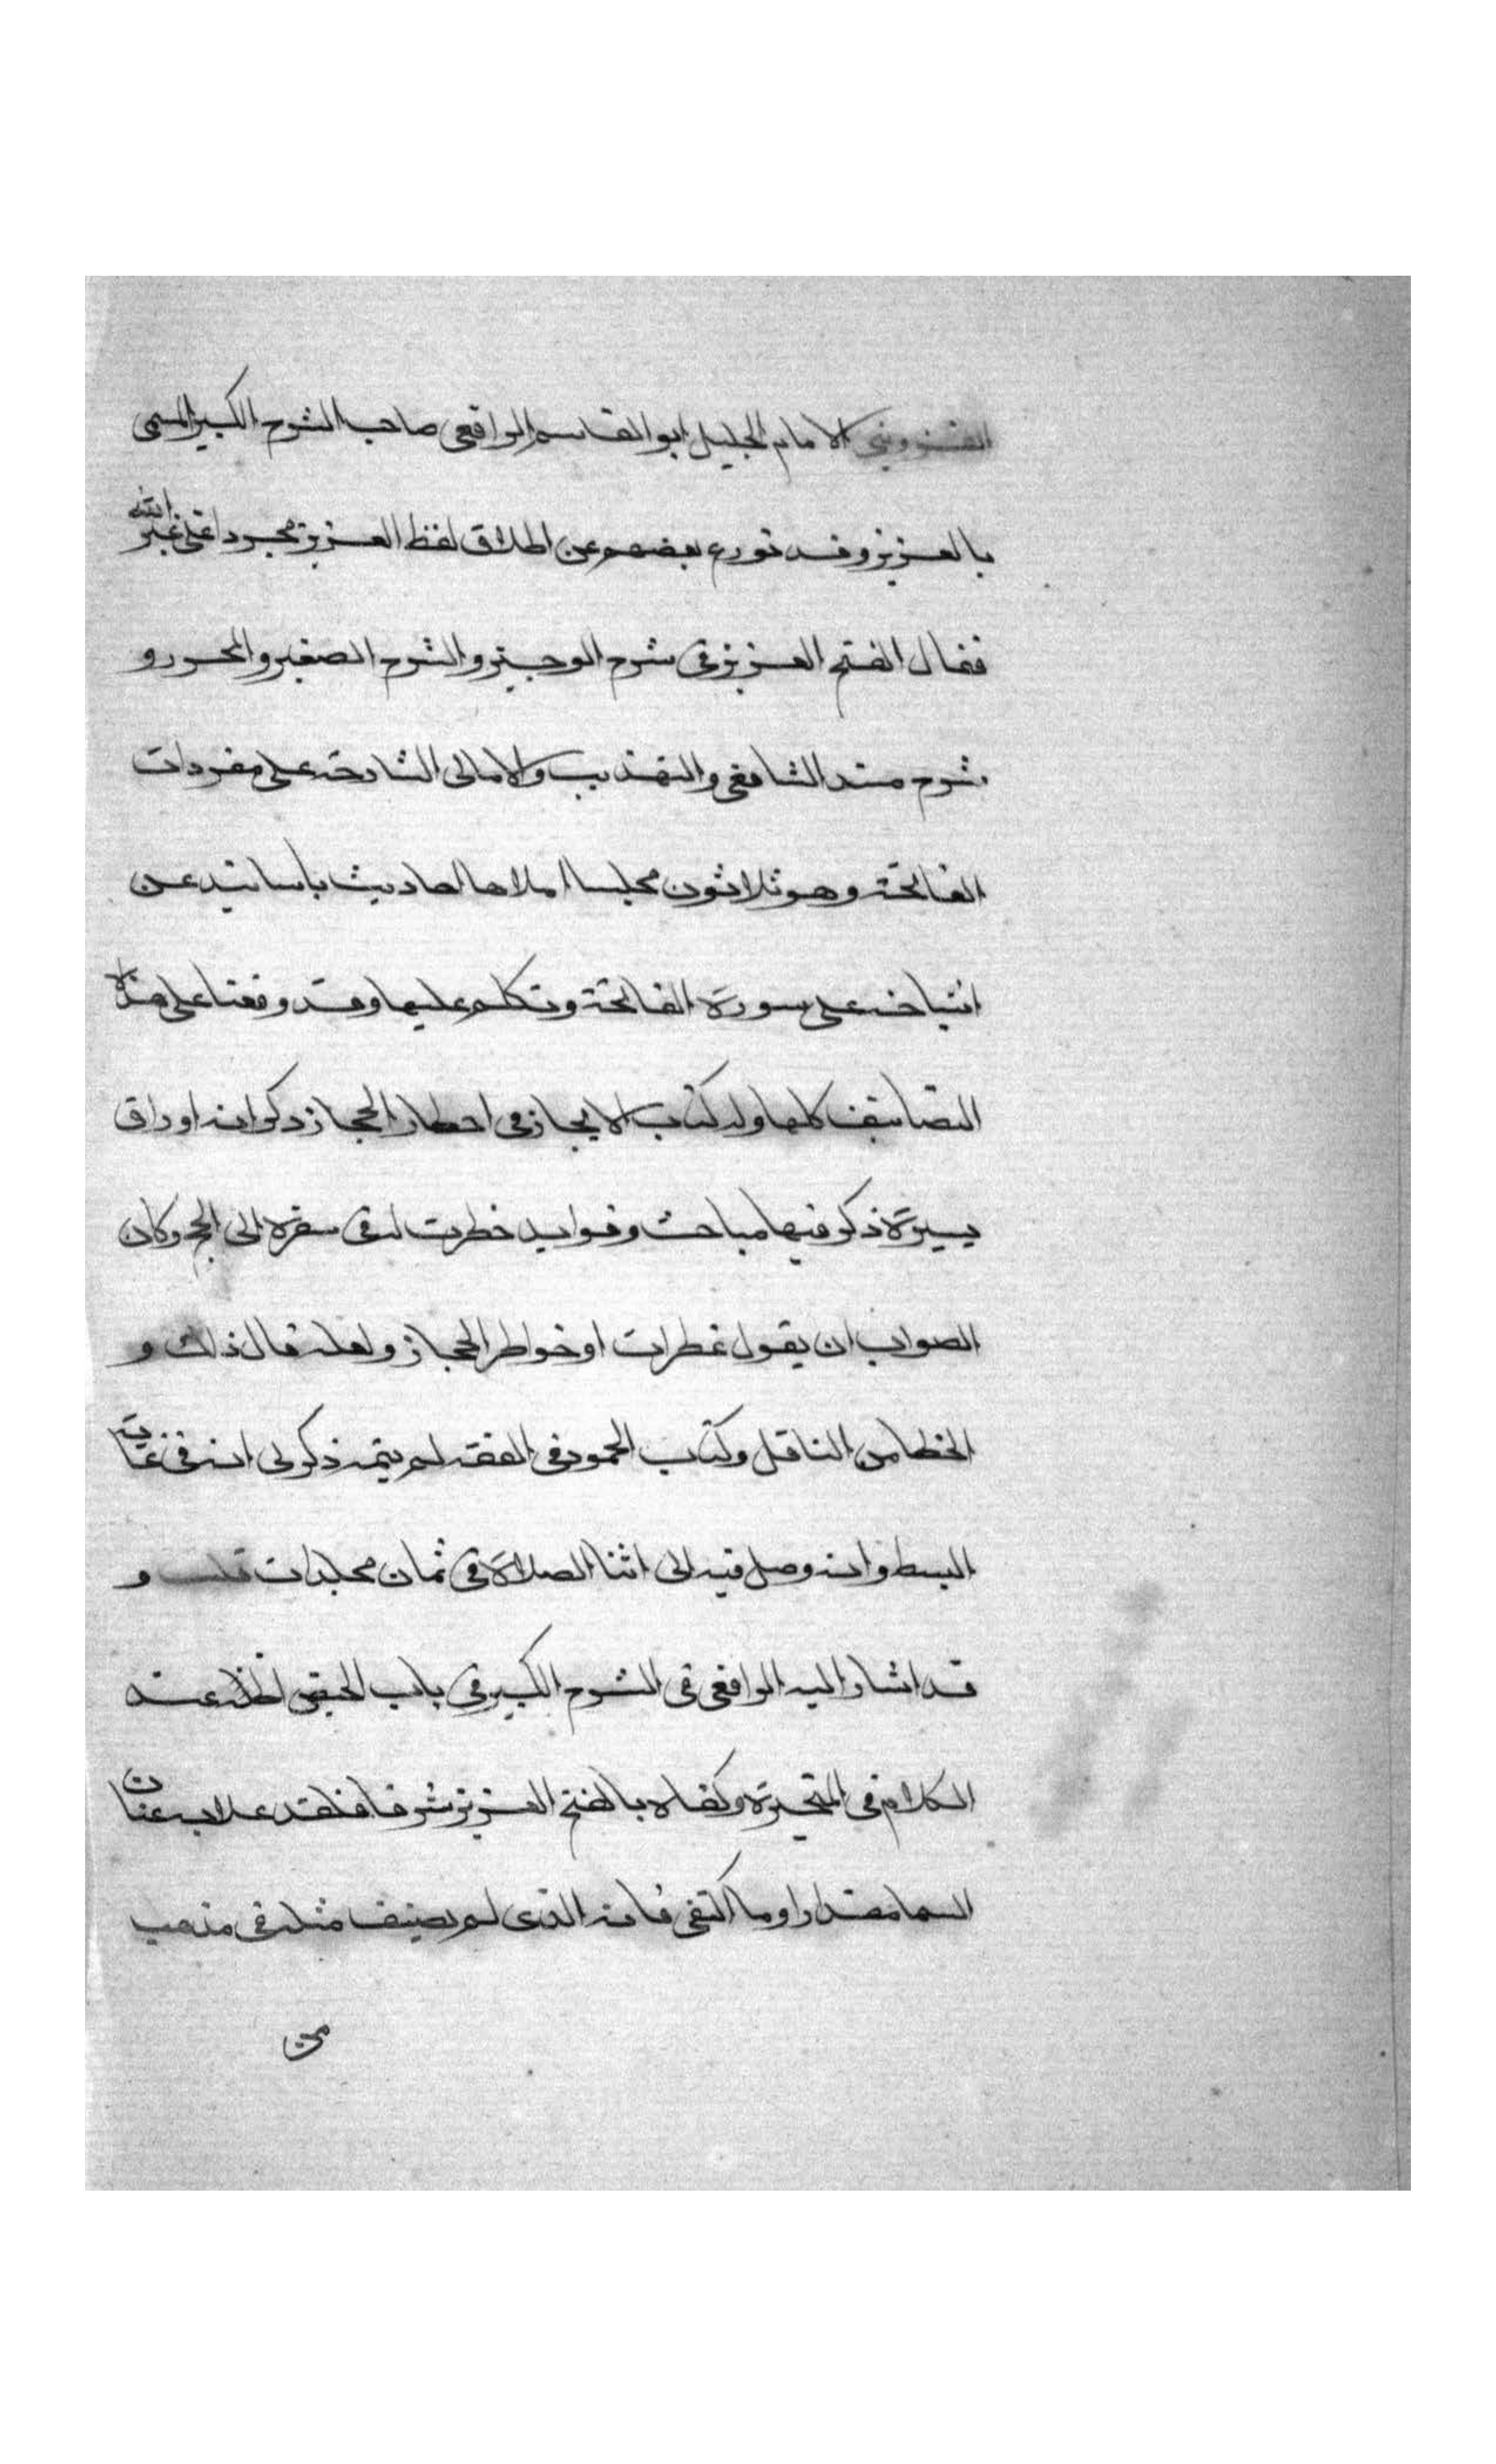 القزويني الامام الجليل ابو القاسم الرافعي صاحب الشرح الكبير المسمى
بالعزيز وقد تورع بعضهم عن اطلاق لفظ العزيز مجردا على غير الله
فقال الفتح العزيز في شرح الوجيز والشرح الصغير والمحرر و
شرح مسند الشافعي والتهذيب والامالي الشارحة على مفردات
الفاتحة وهو ثلاثون مجلسا املاها احاديث بأسانيد عن
اشياخه على سورة الفاتحة وتكلم عليها وقد وقفنا على هذه
التصانيف كلها وله كتاب الايجاز في احطار الحجاز ذكر انه اوراق
يسيرة ذكر فيها مباحث وفوايد خطرت له في سفره الى الحج وكان
الصواب ان يقول خطرات او خواطر الحجاز ولعله قال ذلك و
الخطا من الناقل وكتاب المحمود في الفقه لم يتمه ذكر لي انه في غاية
البسط وانه وصل فيه الى اثنا الصلاة في ثمان مجلدات قلت و
قد اشار اليه الرافعي في الشرح الكبير في باب الحيض اظنه عند
الكلام في المتحيرة وكفاه بالفتح العزيز شرفا فلقد علا به عنان
السما مقدارا وما اكتفى فانه الذي لم يصنف مثله في مذهب
من